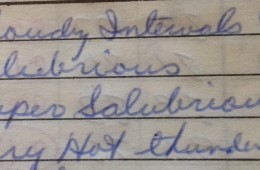 loudy Intervals
lubrious
uper Salubriou
ry Hot thunder